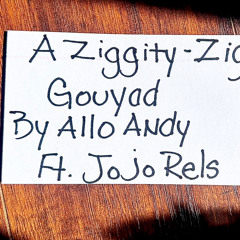 A Ziggity-Zig
Gouyad
By Allo Andy
Ft. JoJo Rels